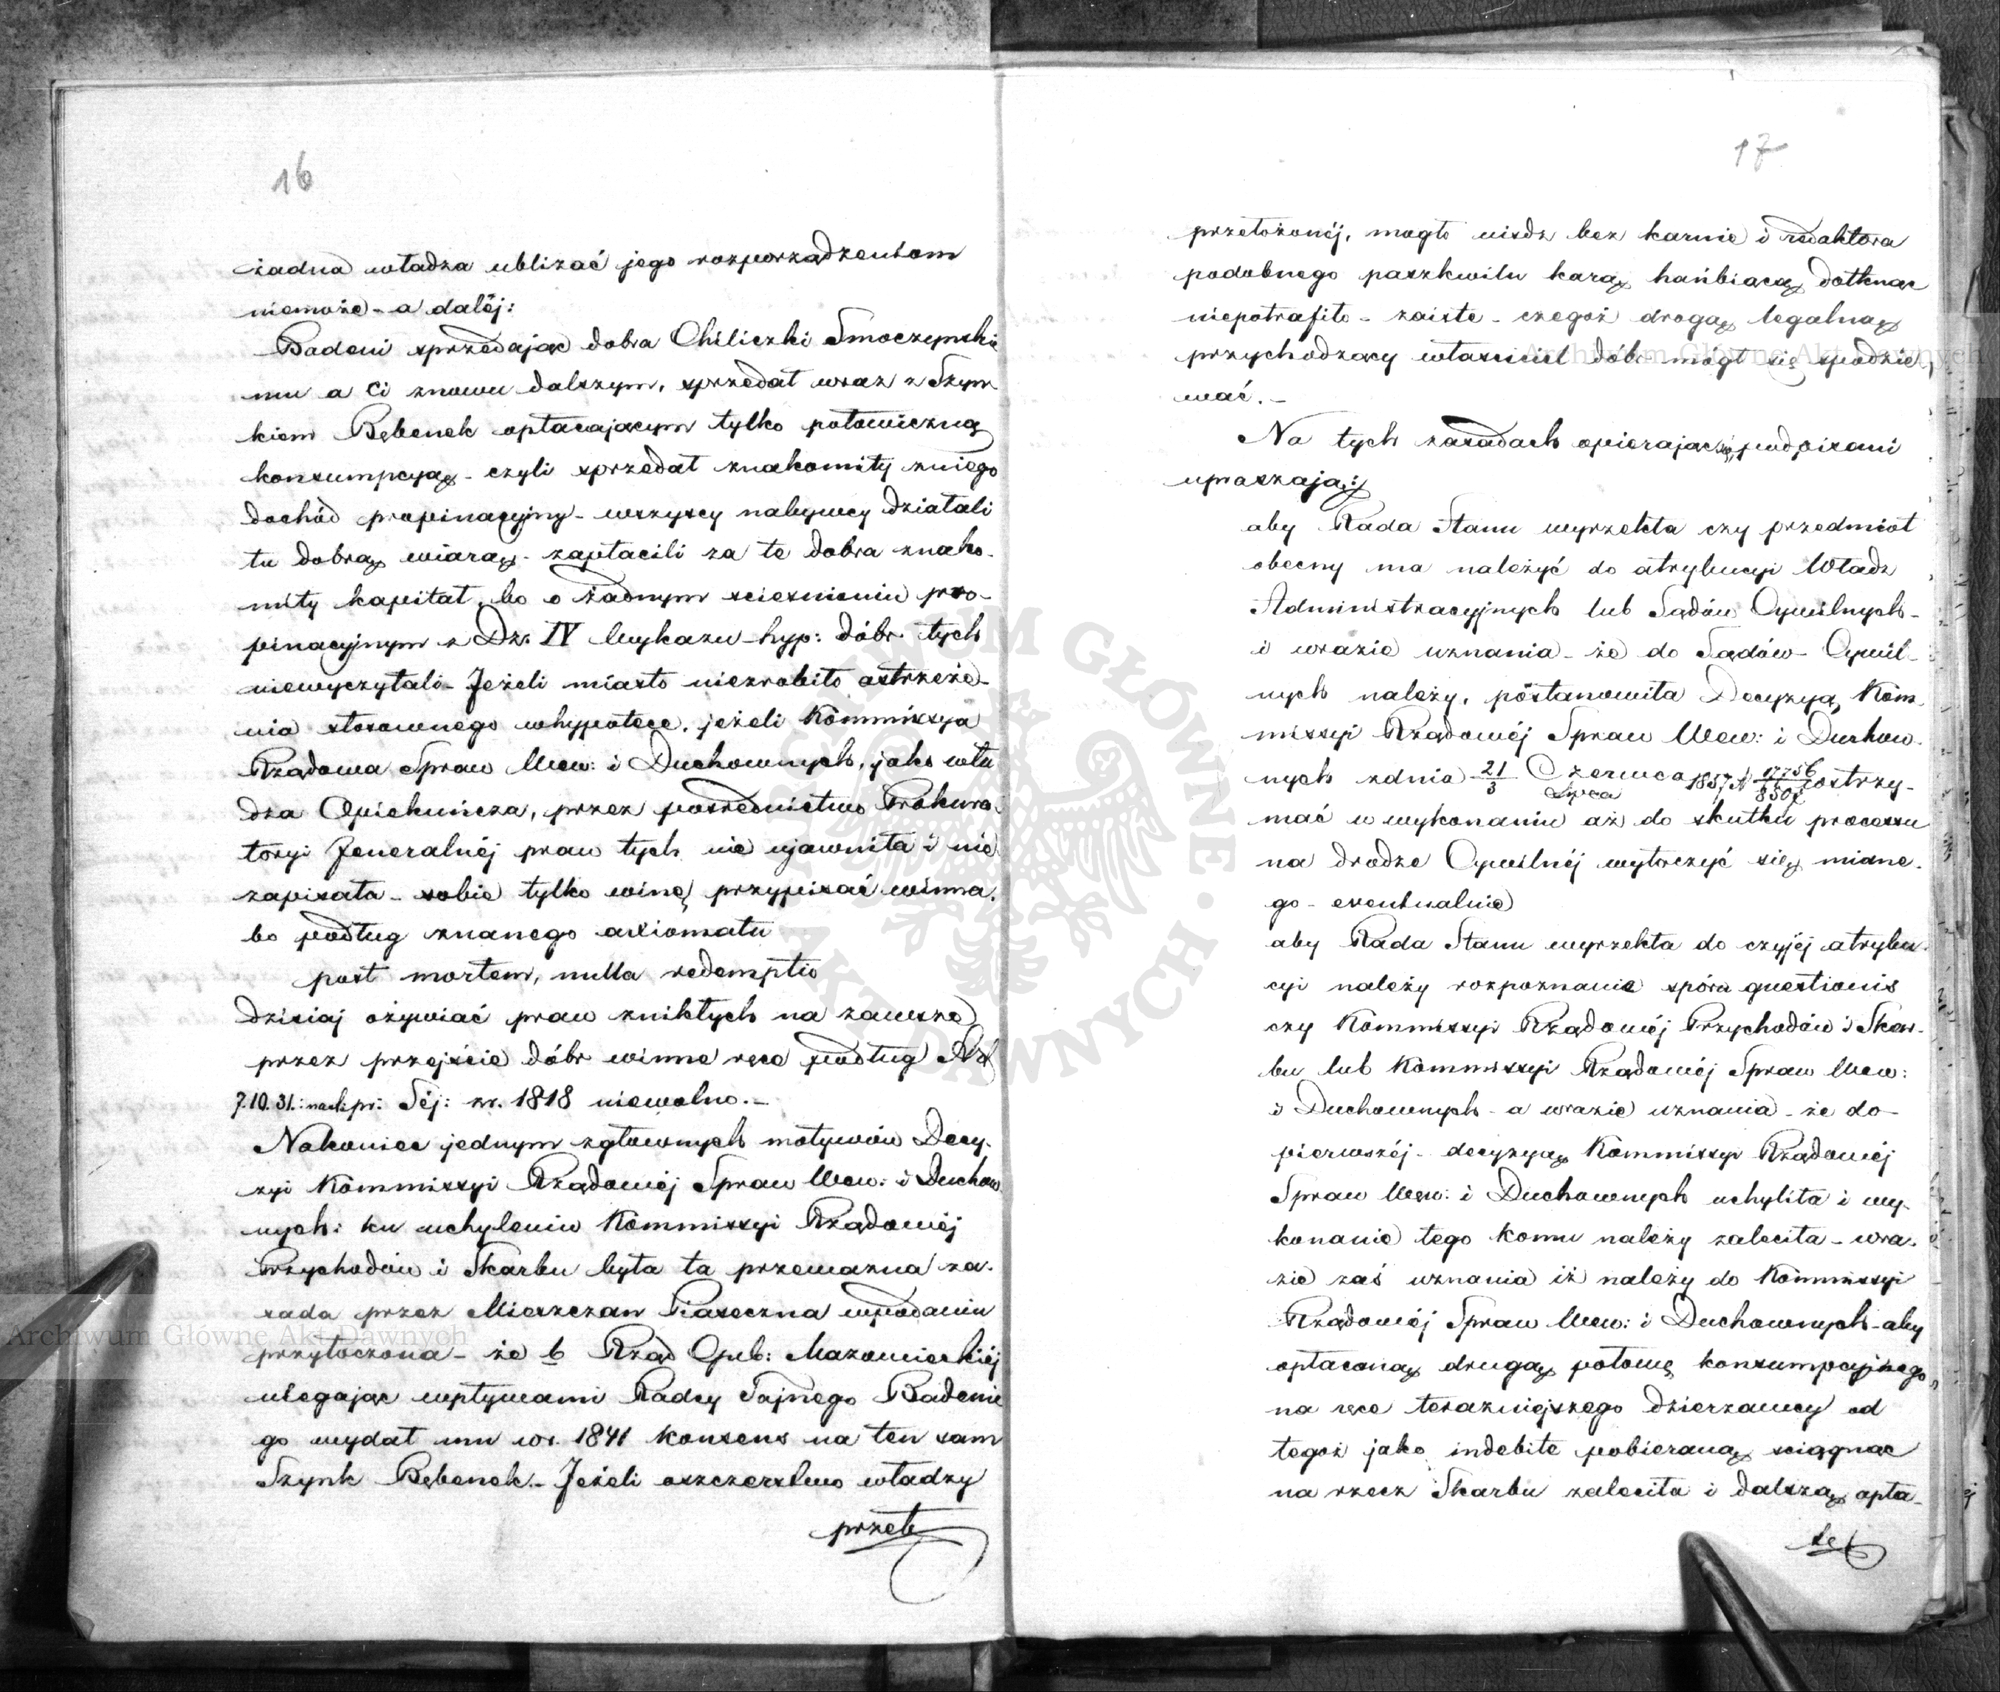 16
żadna władza ubliżać jego rozporządzeniom
niemoże - a daléj:
Badeni sprzedając dobra Chiliczki Smoczyński
mu a Ci znowu dalszym, sprzedał wraz z Szyn
kiem Bębenek opłacającym tylko połowiczną
konsumpcyą - czyli sprzedał znakomity zniego
dochód propinacyjny - wszyscy nabywcy działali
tu dobrą wiarą - zapłacili za te dobra znako-
mity kapitał, bo o żadnym scieśnieniu pro-
pinacyjnym z Dz. IV Wykazu hyp: dóbr tych
niewyczytali - Jeżeli miasto niezrobiło ostrzeże-
nia stosownego whypotece, jeżeli Kommissya
Rządowa Spraw Wew: i Duchownych, jako wła
dza Opiekuńcza, przez pośrednictwo Prokura-
toryi Jeneralnéj praw tych nie ujawniła i nie
zapisała - sobie tylko winę przypisać winna,
bo podług znanego axiomatu
post mortem, nulla redemptio
dzisiaj ożywiać praw znikłych na zawsze
przez przejście dóbr winne ręce podług Art
7.10.31. : nast: pr: Séj: zr. 1818 niewolno. -
Nakoniec jednym zgłownych motywów Decy-
zyi Kommissyi Rządowéj Spraw Wew: i Duchow
nych: ku uchyleniu Kommissyi Rządowéj
Przychodów i Skarbu była ta przeważna za-
sada przez Mieszczan Piaseczna wpodaniu
przytoczona - że b Rząd Gub: Mazowieckiéj
ulegając wpływami Radcy Tajnego Badenie
go wydał mu wr. 1841 konsens na ten sam
Szynk Bębenek. - Jeżeli oszczerstwo władzy
przeło
17
przełożonéj, mogło ujsdz bez karnie i redaktora
podobnego paszkwilu karą hańbiącą dotknąc
niepotrafiło - zaiste - czegoż drogą legalną
przychodzący własciciel dóbr mógł się spodzie
wać. -
Na tych zasadach opierając się podpisani
upraszają:
aby Rada Stanu wyrzekła czy przedmiot
obecny ma należyć do atrybucyi Władz
Administracyjnych lub Sądów Cywilnych -
i wrazie uznania - że do Sądów Cywil-
nych należy, postanowiła Decyzyą Kom-
missyi Rządowéj Spraw Wew: i Duchow-
nych zdnia 21/3 Czerwca/Lipca 1857 N 17756/8507 wstrzy-
mać w wykonaniu aż do skutku processu
na drodze Cywilnéj wytoczyć się miane-
go - ewentualnie
aby Rada Stanu wyrzekła do czyjéj atrybu-
cyi należy rozpoznanie sporu questionis
czy Kommissyi Rządowéj Przychodów i Skar-
bu lub Kommissyi Rządowéj Spraw Wew:
i Duchownych - a wrazie uznania - że do -
pierwszéj - decyzyą Kommissyi Rządowéj
Spraw Wew: i Duchownych uchyliła i wy-
konanie tego komu należy zaleciła - wra-
zie zaś uznania iż należy do Kommissyi
Rządowéj Spraw Wew: i Duchownych - aby
opłaconą drugą połowę konsumpcyjnego
na ręce terazniejszego dzierzawcy od
tegoż jako indebite pobieraną sciągnąc
na rzecz Skarbu zaleciła i dalszą opła-
tę